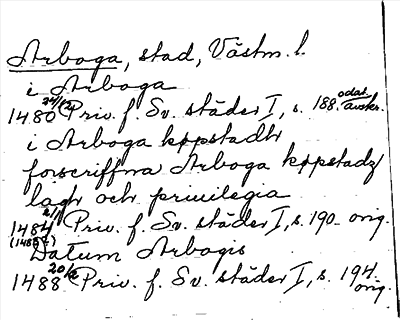 Arboga, stad, Västm. l.
i Arboga
1480 24/12 Priv. f. Sv. städer I, s. 188. odat. avskr.
i Arboga kopstadh
forscriffna Arboga kopstadz
lagh och priuilegia
1484 2/1 Priv. f. Sv. städer I, s. 190. orig.
(1485?) Datum Arbogis
1488 20/2 Priv. f. Sv. städer I, s. 194. orig.